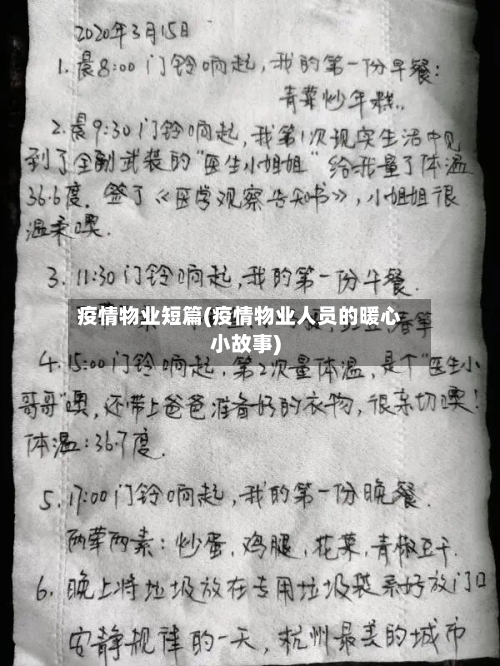 2020年3月15日
1. 晨8:00 门铃响起，我的第一份早餐：
青菜炒年糕..
2. 晨9:30 门铃响起，我第1次现实生活中见
到了全副武装的“医生小姐姐”给我量了体温
36.6度. 签了《医学观察告知书》，小姐姐很
温柔噢.
3. 11:30 门铃响起，我的第一份午餐.
疫情物业短篇(疫情物业人员的暖心
小故事)
笋
4. 15:00 门铃响起，第2次量体温，是个“医生小
哥哥”噢，还带上爸爸准备好的衣物，很亲切噢！
体温：36.7度.
5. 17:00 门铃响起，我的第一份晚餐.
两荤两素：炒蛋，鸡腿，花菜，青椒豆干.
6. 晚上将垃圾放在专用垃圾袋系好放门口
安静规律的一天，杭州最美的城市